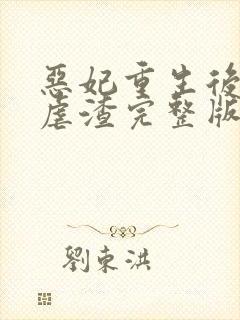 惡妃重生後
虐渣完整版
劉東洪